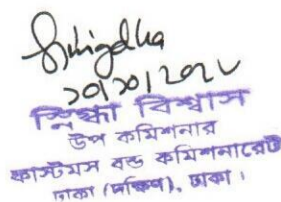 ২০/১০/২০২২
স্নিগ্ধা বিশ্বাস
উপ কমিশনার
কাস্টমস বন্ড কমিশনারেট
ঢাকা (দক্ষিণ), ঢাকা।